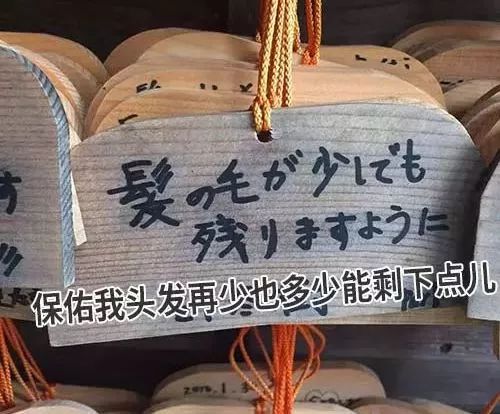 髪の毛が少しでも
残りますように
保佑我头发再少也多少能剩下点儿
2010.1.